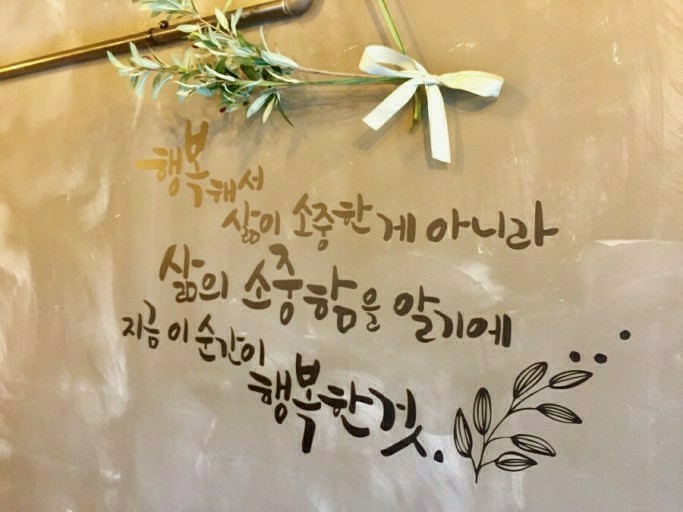 행복해서
삶이 소중한 게 아니라
삶의 소중함을 알기에
지금 이 순간이
행복한 것.